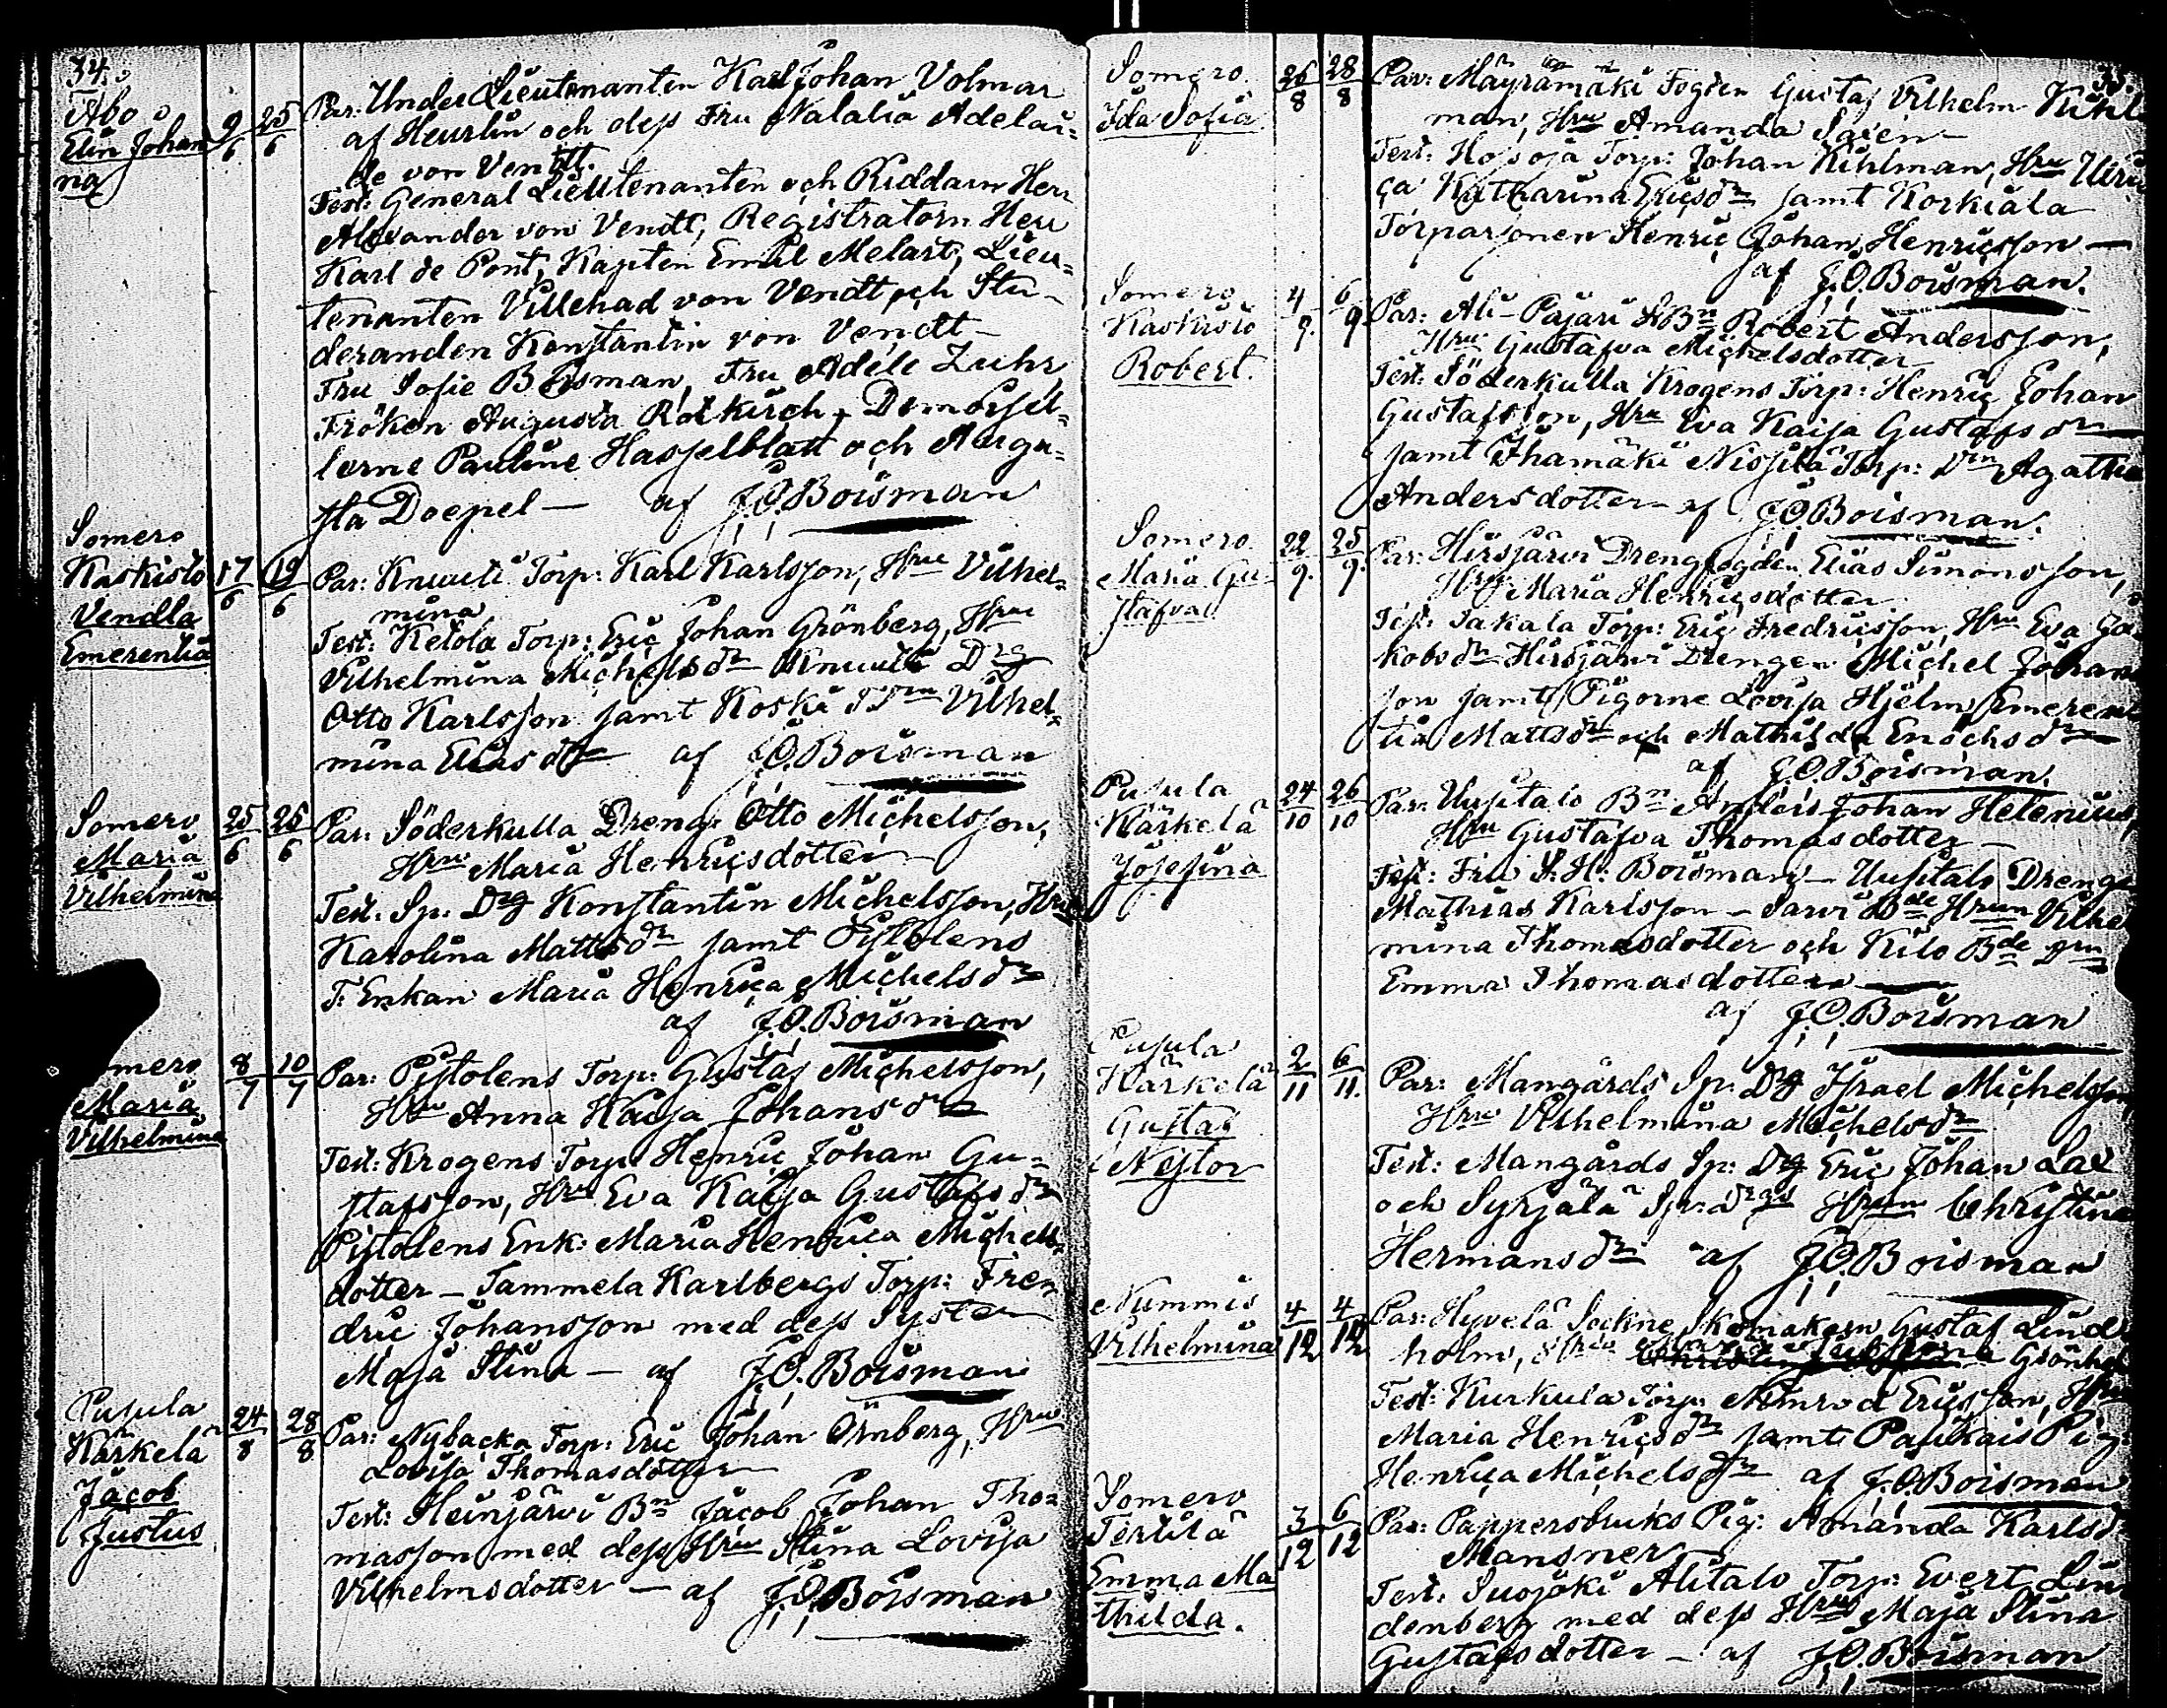 34.
Åbo
Elin Johan
na
9/6 25/6
Par: Under Lieutenanten Karl Johan Volmar
af Heurlin och dess Fru Natalia Adelai-
de von Vendt.
Test: General Lieutenanten och Riddarn Herr
Alexander von Vendt, Registratorn Herr
Karl de Pont, Kapten Emil Melart, Lieu-
tenanten Villehad von Vendt och Stu-
deranden Konstantin von Vendt –
Fru Sofie Boisman, Fru Adéle Zuhr,
Fröken Augusta Rotkirch, Demoisel-
lerne Pauline Hasselblatt och Augu-
sta Doepel — af J.O. Boisman
Somero
Kaskisto
Vendla
Emerentia
17/6 19/6
Par: Knuuti Torp: Karl Karlsson, Hru Vilhel-
mina
Test: Ketola Torp: Eric Johan Grönberg, Hru
Vilhelmina Michelsdr Knuuti Drg
Otto Karlsson samt Koski Vilhel-
mina Eliasdr af J.O. Boisman
Somero
Maria
Vilhelmina
25/6 25/6
Par: Söderkulla Dreng: Otto Michelsson,
Hru Maria Henricsdotter
Test: Sp: Drg Konstantin Michelsson, Hru
Karolina Mattsdr samt Pistolens
T. Enkan Maria Henrica Michelsdr
af J.O. Boisman
mero
Maria
Vilhelmina
8/7 10/7
Par: Pistolens Torp: Gustaf Michelsson,
Hru Anna Kaisa Johansdr
Test: Krogens Torp: Henric Johan Gu-
stafsson, Hru Eva Kaisa Gustafsdr
Pistolens Enk: Maria Henrica Michels-
dotter – Tammela Karlbergs Torp: Fre-
dric Johansson med dess Syster
Maja Stina – af J.O. Boisman
Pusula
Kärkelä
Jacob
Justus
24/8 28/8
Par: Nybacka Torp: Eric Johan Örnberg, Hru
Lovisa Thomasdotter
Test: Heinjärvi Bn Jacob Johan Tho-
masson med dess Hru Stina Lovisa
Vilhelmsdotter — af J.O. Boisman
35.
Somero
Ida Sofia
26/8 28/8
Par: Mäyrämäki Fogden Gustaf Vilhelm Kihl
man, Hru Amanda Saxén
Test: Hossoja Torp: Johan Kihlman, Hru Ulri
ca Katharina Ericsdr samt Korkiala
Torparsonen Henric Johan Henricsson —
af J.O. Boisman.
Somero
Kaskisto
Robert.
4/9. 6/9
Par: Ali-Pajari Bn Robert Andersson,
Hru Gustafva Michelsdotter
Test: Söderkulla Krogens Torp: Henric Johan
Gustafsson, Hru Eva Kaisa Gustafsdr
samt Ihamäki Nissilä Torp: Drn Agatha
Andersdotter – af J.O. Boisman.
Somero
Maria Gu-
stafva
22/9. 25/9.
Par: Hirsjärvi Drengfogden Elias Simonsson,
Hru Maria Henricsdotter
Test: Jakala Torp: Eric Fredricsson, Hru Eva Ja
kobsdr Hirsjärvi Drengen Michel Johans
son samt Pigorne Lovisa Hjelm, Emeren
tia Mattsdr och Mathilda Enochsdr
af J.O. Boisman.
Pusula
Kärkelä
Josefina
24/10 26/10
Par: Uusitalo Bn Anders Johan Helenius,
Hru Gustafva Thomasdotter –
Test: Fru S.H. Boisman – Uusitalo Drenge
Mathias Karlsson – Sarvi Bde Hrun Vilhel
mina Thomasdotter och Kilo Bde Drn
Emma Thomasdotter
af J.O. Boisman
Pusula
Kärkelä
Gustaf
Nestor
2/11 6/11.
Par: Mangårds Sp: Drg Israel Michelsson,
Hru Vilhelmina Michelsdr
Test: Mangårds Sp: Drg Eric Johan Lax
och Syrjälä Sp: drgs Hrun Christina
Hermansdr af J.O. Boisman
Nummis
Vilhelmina
4/12 4/12
Par: Hyvelä Sockne Skomakern Gustaf Lind
holm, Hru Grönhol
Test: Kurkula Torp: Nimrod Ericsson, Hru
Maria Henricsdr samt Paukais Pig:
Henrica Michelsdr af J.O. Boisman
Somero
Terttilä
Emma Ma
thilda.
3/12 6/12
Par: Pappersbruks Pig: Amanda Karlsdr
Mansner –
Test: Suojoki Alitalo Torp: Evert Lin
denberg med dess Hru Maja Stina
Gustafsdotter – af J.O. Boisman